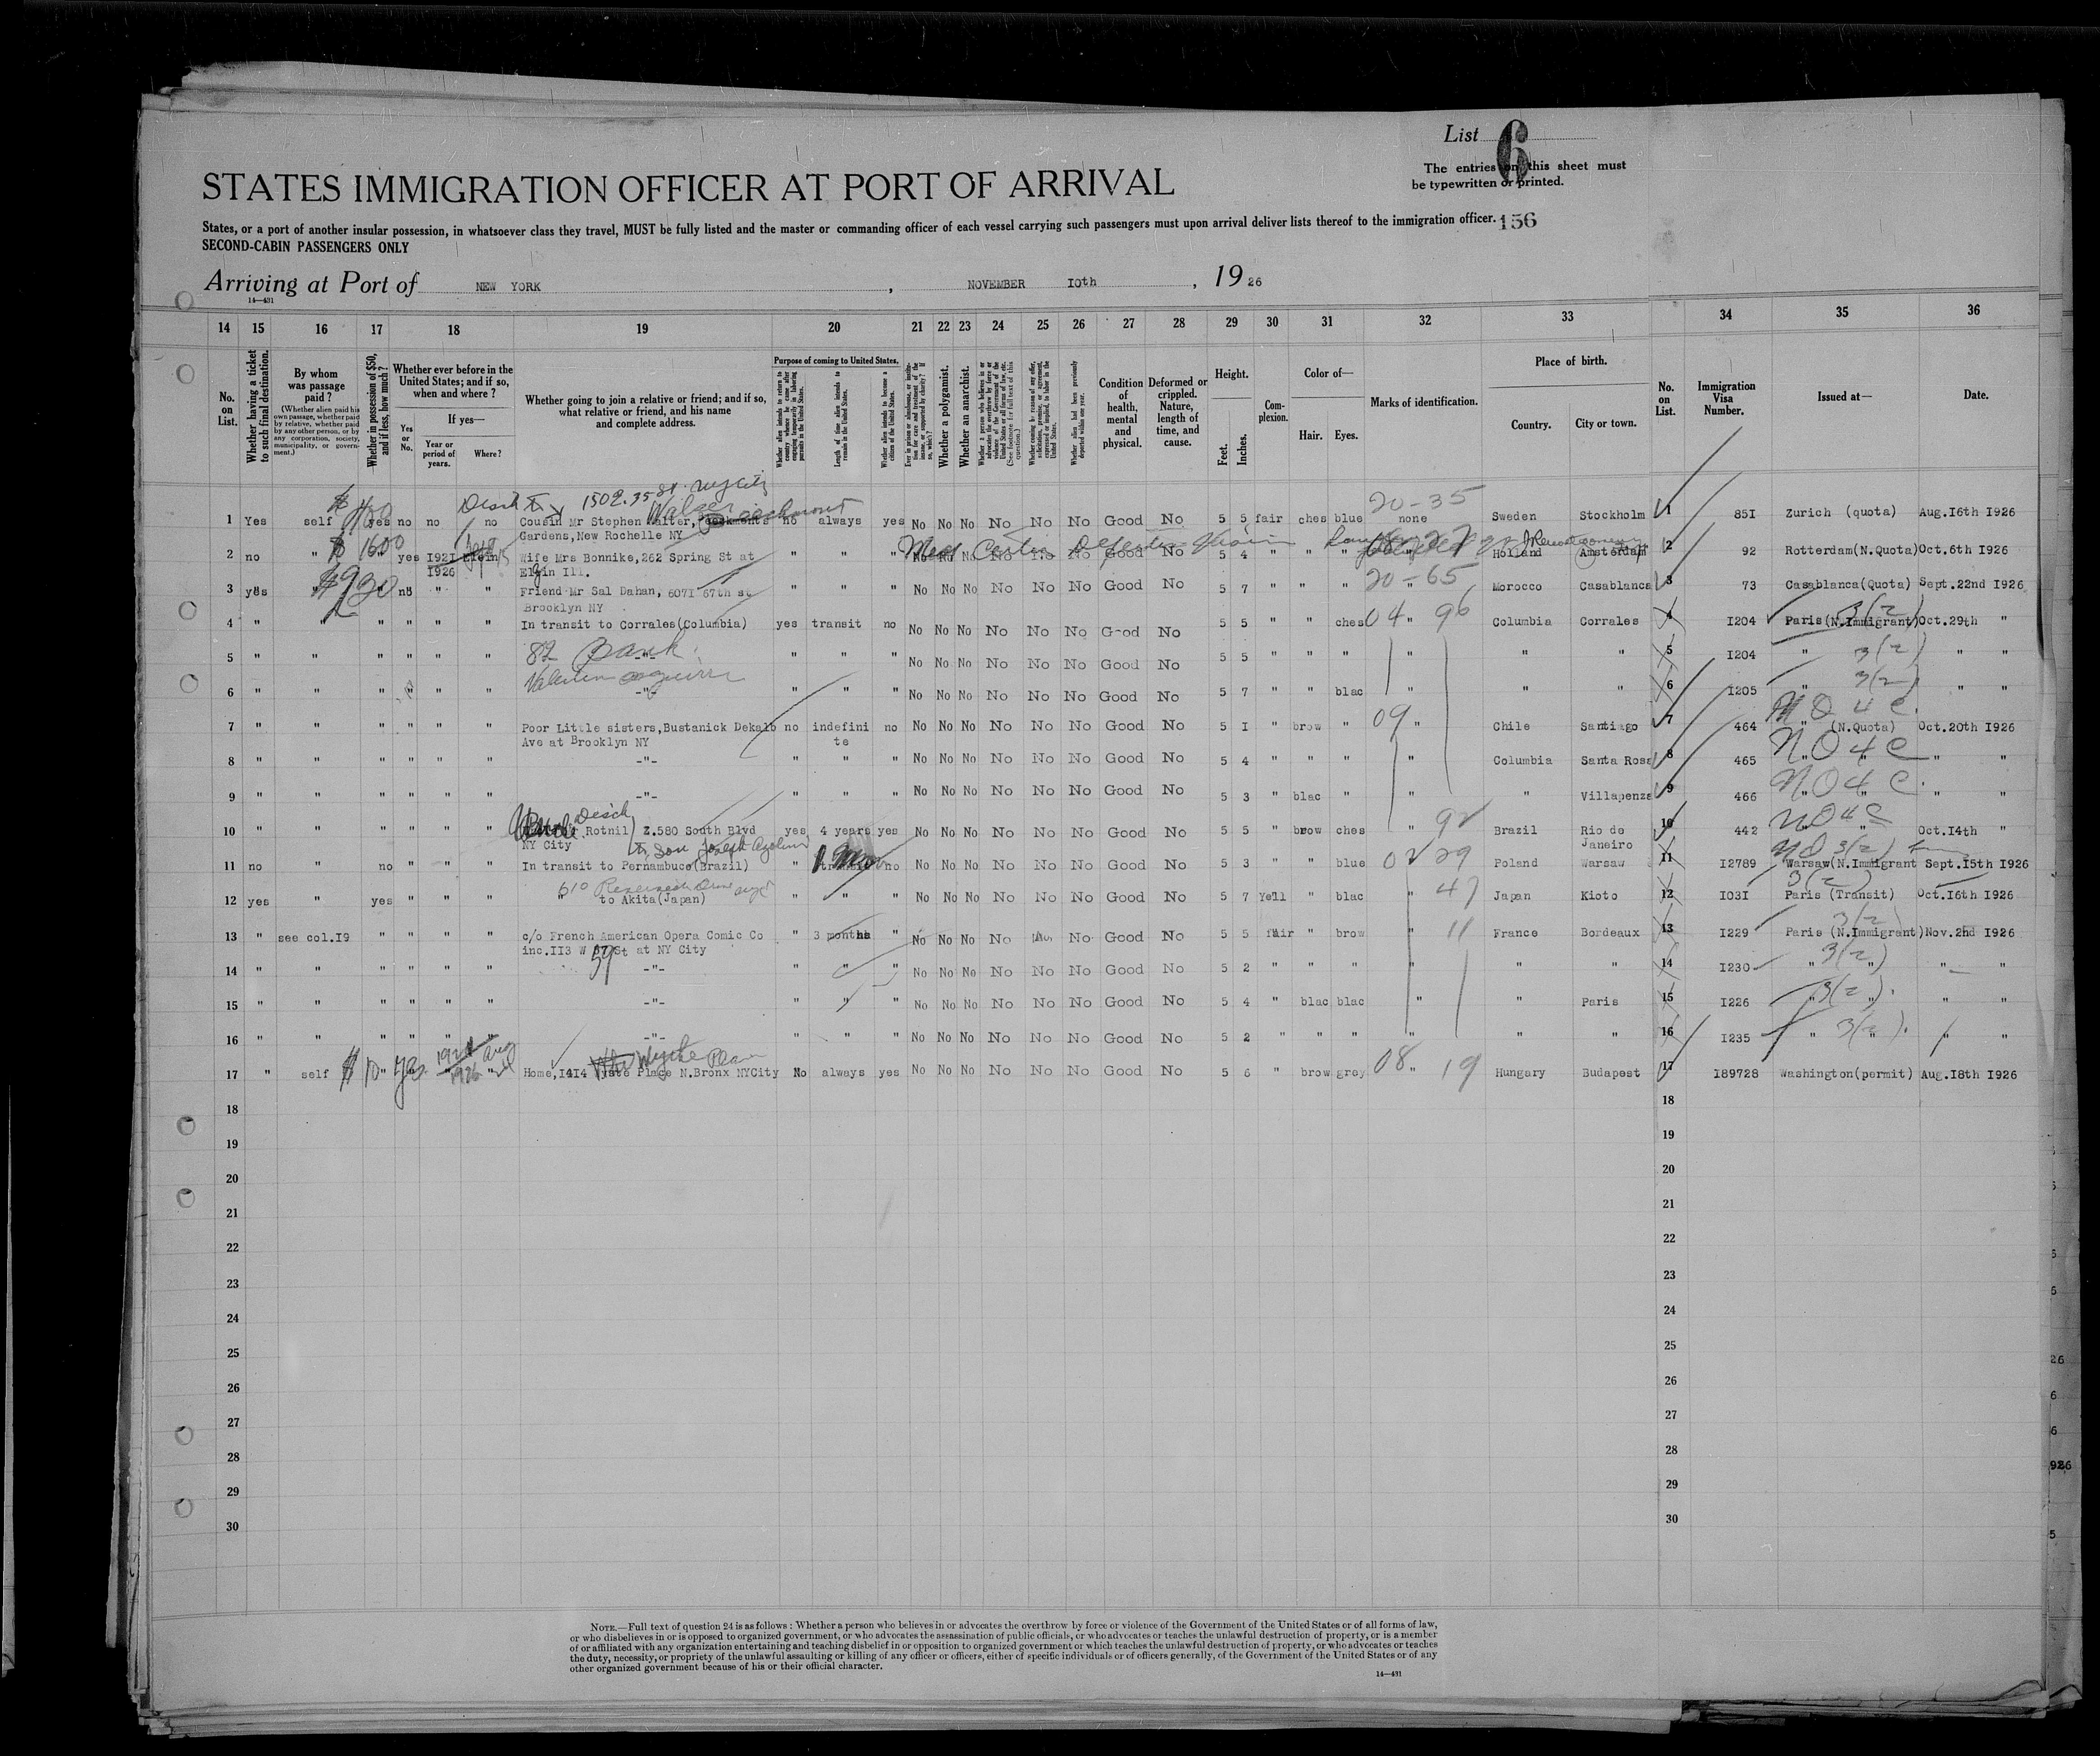 List 6
The entries on this sheet must
be typewritten or printed.
STATES IMMIGRATION OFFICER AT PORT OF ARRIVAL
States, or a port of another insular possession, in whatsoever class they travel, MUST be fully listed and the master or commanding officer of each vessel carrying such passengers must upon arrival deliver lists thereof to the immigration officer. 156
SECOND-CABIN PASSENGERS ONLY
Arriving at Port of NEW YORK, NOVEMBER I0th, 1926
14—431
14 15 16 17 18 19 20 21 22 23 24 25 26 27 28 29 30 31 32 33 34 35 36
No. on List.
Whether having a ticket to such final destination.
By whom was passage paid?
(Whether alien paid his own passage, whether paid by relative, whether paid by any other person, or by any corporation, society, municipality, or government.)
Whether in possession of $50, and if less, how much?
Whether ever before in the United States; and if so, when and where?
Yes or No.
If yes—
Year or period of years.
Where?
Whether going to join a relative or friend; and if so, what relative or friend, and his name and complete address.
Purpose of coming to United States.
Whether alien intends to return to country whence he came after engaging temporarily in laboring pursuits in the United States.
Length of time alien intends to remain in the United States.
Whether alien intends to become a citizen of the United States.
Whether a polygamist.
Whether an anarchist.
Condition of health, mental and physical.
Deformed or crippled. Nature, length of time, and cause.
Height.
Feet. Inches.
Complexion.
Color of—
Hair. Eyes.
Marks of identification.
Place of birth.
Country. City or town.
No. on List.
Immigration Visa Number.
Issued at—
Date.
1502.35 St. NyCity
20-35
1 Yes self yes no no no Cousin Mr Stephen no always yes No No No No No No Good No 5 5 fair ches blue none Sweden Stockholm 1 85I Zurich (quota) Aug.I6th I926
Gardens,New Rochelle NY
2 no " $ 1600 yes I92I Wife Mrs Bonnike,262 Spring St at " " " No No No No No No Good No 5 4 " " " " Holland Amsterdam 2 92 Rotterdam(N.Quota) Oct.6th I926
I926 Elgin Ill.
20-65
3 yes " $930 no " " Friend Mr Sal Dahan, 607I 67th st " " " No No No No No No Good No 5 7 " " " Morocco Casablanca 3 73 Casablanca(Quota) Sept.22nd I926
Brooklyn NY
4 " " " " " " In transit to Corrales(Columbia) yes transit no No No No No No No Good No 5 5 " " ches 04 " 96 Columbia Corrales 4 I204 Paris(N.Immigrant) 3(2) Oct.29th "
82 Bank
5 " " " " " " -"- " " " No No No No No No Good No 5 5 " " " " " " 5 I204 " 3(2) " "
6 " " " " " " -"- " " " No No No No No No Good No 5 7 " " blac " " " 6 I205 " 3(2) " "
NO 4 C.
7 " " " " " " Poor Little sisters,Bustanick Dekalb no indefini no No No No No No No Good No 5 I " brow " 09 " Chile Santiago 7 464 " (N.Quota) Oct.20th I926
Ave at Brooklyn NY te
8 " " " " " " -"- " " " No No No No No No Good No 5 4 " " " " Columbia Santa Rosa 8 465 NO 4 C " " "
9 " " " " " " -"- " " " No No No No No No Good No 5 3 " blac " " " Villapenza 9 466 NO 4 C. " " "
10 " " " " " " Rotnil Z.580 South Blvd yes 4 years yes No No No No No No Good No 5 5 " brow ches " 92 Brazil Rio de Janeiro 10 442 NO 4 C " " Oct.I4th "
NY City
11 no " no " " " In transit to Pernambuco(Brazil) " transit no No No No No No No Good No 5 3 " " blue 02 29 Poland Warsaw 11 I2789 Warsaw(N.Immigrant Sept.I5th I926
3(2)
12 yes " yes " " " " to Akita(Japan) " " " No No No No No No Good No 5 7 Yell " blac " 47 Japan Kioto 12 I03I Paris (Transit) Oct.I6th I926
3(2)
13 " see col.I9 " " " " c/o French American Opera Comic Co " 3 months " No No No No No No Good No 5 5 fair " brow " 11 France Bordeaux 13 I229 Paris (N.Immigrant) Nov.2nd I926
inc.II3 W 57 St at NY City
14 " " " " " " -"- " " " No No No No No No Good No 5 2 " " " " " " 14 I230 " 3(2) " " "
15 " " " " " " -"- " " " No No No No No No Good No 5 4 " blac blac " " Paris 15 I226 " 3(2). " " "
16 " " " " " " -"- " " " No No No No No No Good No 5 2 " " " " " " 16 I235 " 3(2). " " "
17 " self $ 10 yes 1926 Home,I4I4 Place N.Bronx NYCity No always yes No No No No No No Good No 5 6 " brow grey 08 " 19 Hungary Budapest 17 I89728 Washington(permit) Aug.I8th I926
18 18
19 19
20 20
21 21
22 22
23 23
24 24
25 25
26 26
27 27
28 28
29 29
30 30
NOTE.—Full text of question 24 is as follows: Whether a person who believes in or advocates the overthrow by force or violence of the Government of the United States or of all forms of law,
or who disbelieves in or is opposed to organized government, or who advocates the assassination of public officials, or who advocates or teaches the unlawful destruction of property, or is a member
of or affiliated with any organization entertaining and teaching disbelief in or opposition to organized government or which teaches the unlawful destruction of property, or who advocates or teaches
the duty, necessity, or propriety of the unlawful assaulting or killing of any officer or officers, either of specific individuals or of officers generally, of the Government of the United States or of any
other organized government because of his or their official character.
14—431